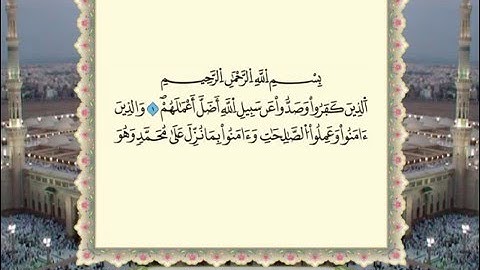 بِسْمِ اللَّهِ الرَّحْمَٰنِ الرَّحِيمِ
الَّذِينَ كَفَرُوا۟ وَصَدُّوا۟ عَن سَبِيلِ اللَّهِ أَضَلَّ أَعْمَٰلَهُمْ ۝١ وَالَّذِينَ
ءَامَنُوا۟ وَعَمِلُوا۟ الصَّٰلِحَٰتِ وَءَامَنُوا۟ بِمَا نُزِّلَ عَلَىٰ مُحَمَّدٍ وَهُوَ